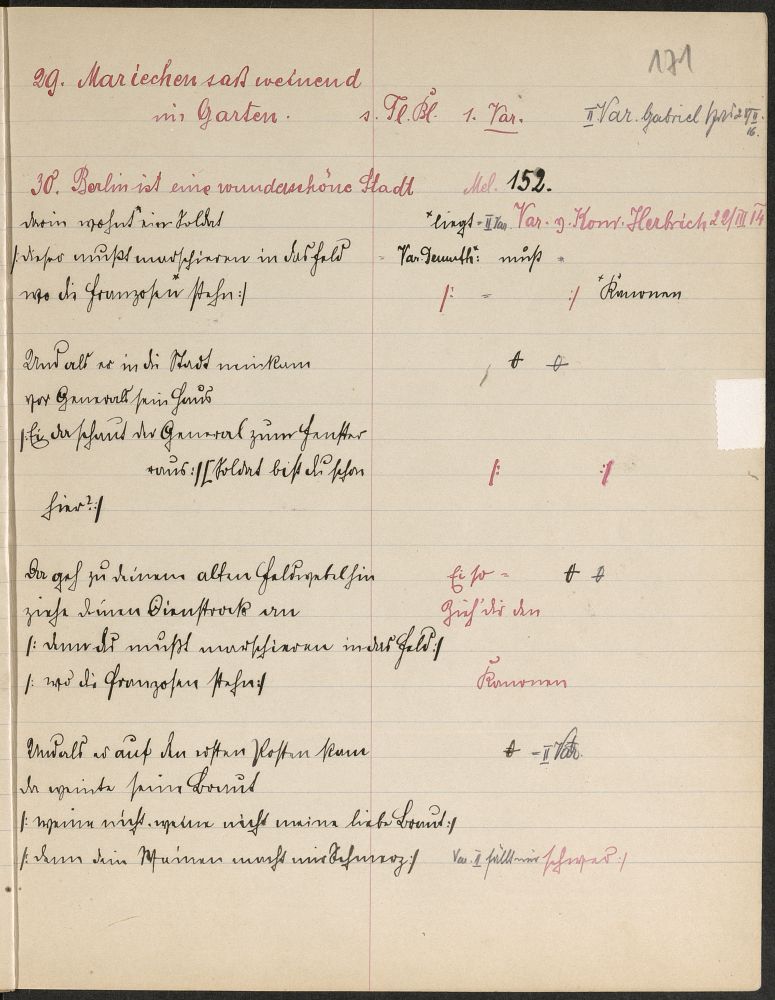 171
29. Mariechen saß weinend
im Garten. s. Fl. Bl. 1. Var. II Var. Gabriel
30. Berlin ist eine wunderschöne Stadt Mel. 152.
darin wohnt ein Soldat *liegt - II Var. Var. v. Konr. Herbrich 22/III 14
/: dieser mußt marschieren in das Feld - Var. Demuth: muß -
wo die Franzosen* stehn :/ /: - :/ *Kanonen
Und als er in die Stadt neinkam
vor Generals sein Haus
/: Ei da schaut der General zum Fenster
raus :/ [Soldat bist du schon /: :/
hier? :/
Da geh zu deinem alten Feldwebel hin Ei so -
ziehe deinen Dienstrock an Zieh' dir den
/: denn du mußt marschieren in das Feld :/
/: wo die Franzosen stehn :/ Kanonen
Und als er auf den ersten Posten kam - II Var.
da weinte seine Braut
/: weine nicht weine nicht meine liebe Braut :/
/: denn dein Weinen macht mir Schmerz :/ Var. II fällt mir schwer :/